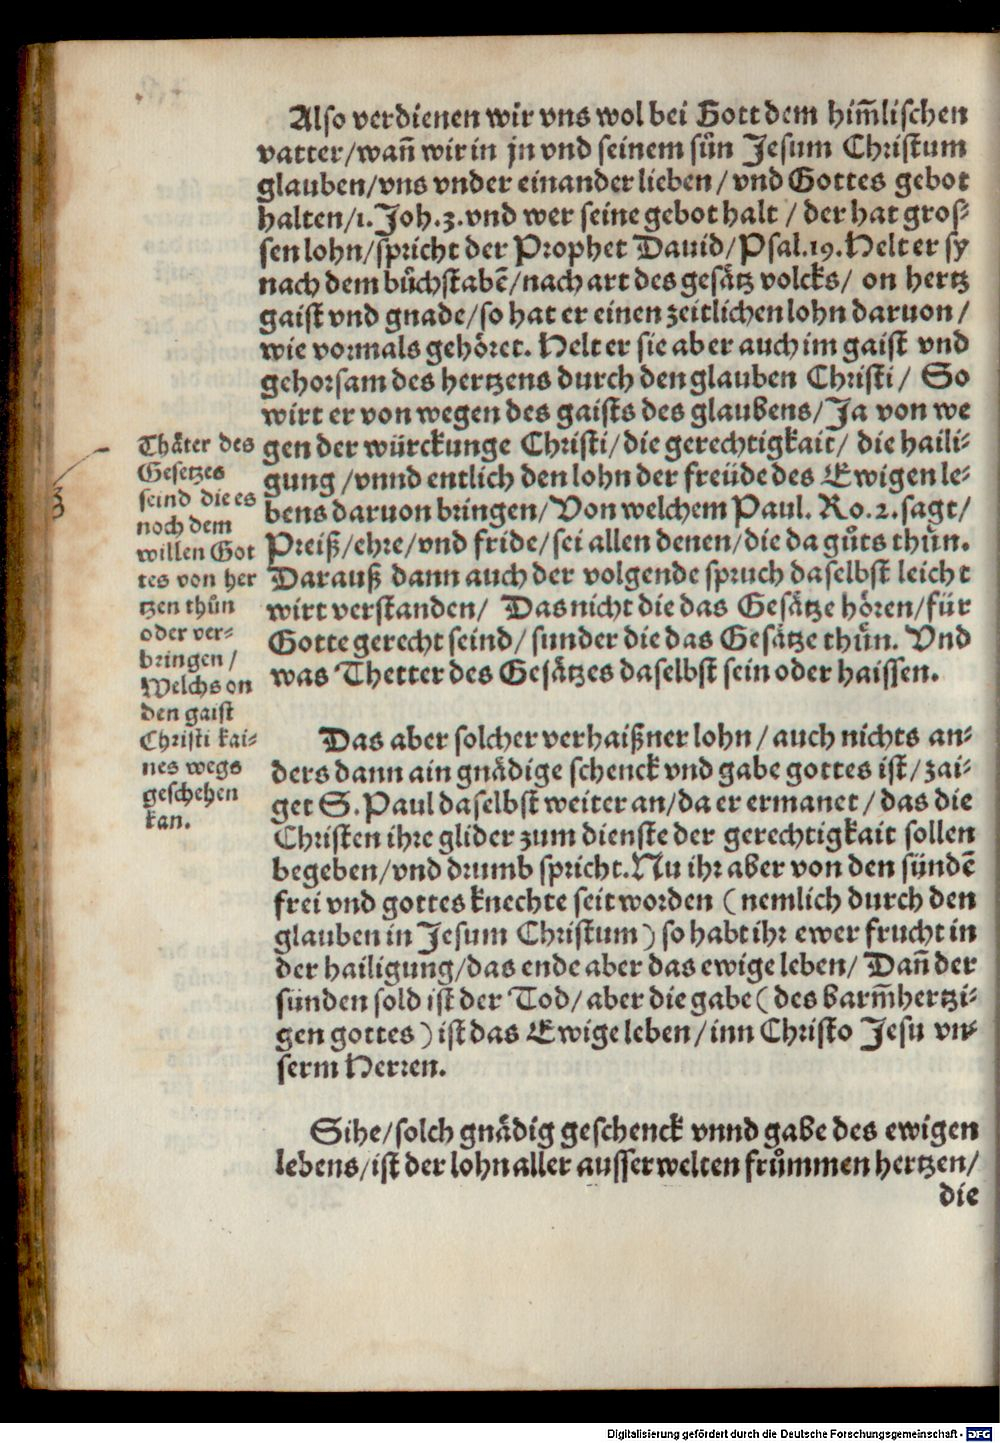 Also verdienen wir vns wol bei Gott dem him̃lischen
vatter/wañ wir in jn vnd seinem sůn Jesum Christum
glauben/vns vnder einander lieben/vnd Gottes gebot
halten/1.Joh.3.vnd wer seine gebot halt/der hat gros-
sen lohn/spricht der Prophet Dauid/Psal.19.Helt er sy
nach dem bůchstabẽ/nach art des gesätz volcks/ on hertz
gaist vnd gnade/so hat er einen zeitlichen lohn daruon/
wie vormals gehöret. Helt er sie aber auch im gaist vnd
gehorsam des hertzens durch den glauben Christi/ So
wirt er von wegen des gaists des glaubens/Ja von we
gen der würckunge Christi/die gerechtigkait/ die haili-
gung/vnnd entlich den lohn der freüde des Ewigen le-
bens daruon bringen/Von welchem Paul. Ro.2.sagt/
Preiß/ehre/vnd fride/sei allen denen/die da gůts thůn.
Darauß dann auch der volgende spruch daselbst leicht
wirt verstanden/ Das nicht die das Gesätze hören/für
Gotte gerecht seind/sunder die das Gesätze thůn. Vnd
was Thetter des Gesätzes daselbst sein oder haissen.
Thäter des
Gesetzes
seind die es
noch dem
willen Got
tes von her
tzen thůn
oder ver-
bringen/
Welchs on
den gaist
Christi kai-
nes wegs
geschehen
kan.
Das aber solcher verhaißner lohn/auch nichts an-
ders dann ain gnädige schenck vnd gabe gottes ist/zai-
get S. Paul daselbst weiter an/da er ermanet/das die
Christen ihre glider zum dienste der gerechtigkait sollen
begeben/vnd drumb spricht.Nu ihr aber von den sündẽ
frei vnd gottes knechte seit worden (nemlich durch den
glauben in Jesum Christum) so habt ihr ewer frucht in
der hailigung/das ende aber das ewige leben/ Dañ der
sünden sold ist der Tod/aber die gabe (des barm̃hertzi-
gen gottes) ist das Ewige leben/inn Christo Jesu vn-
serm Herren.
Sihe/solch gnädig geschenck vnnd gabe des ewigen
lebens/ist der lohn aller ausserwelten frůmmen hertzen/
die
Digitalisierung gefördert durch die Deutsche Forschungsgemeinschaft - DFG